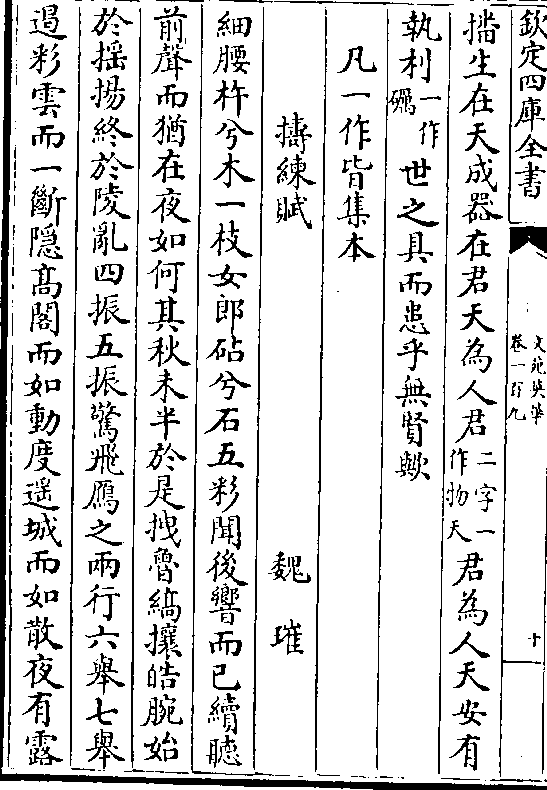 欽定四庫全書
文苑英華
卷一百九
十
擂生在天成器在君天為人君二字一作物天君為人天安有
執利一作礪世之具而患乎無賢歟
凡一作皆集本
擣練賦
魏璀
細腰杵兮木一枝女郎砧兮石五彩聞後響而已續聽
前聲而猶在夜如何其秋未半於是拽魯縞攘皓腕始
於揺揚終於陵亂四振五振驚飛鴈之兩行六舉七舉
遏彩雲而一斷隠髙閣而如動度遥城而如散夜有露